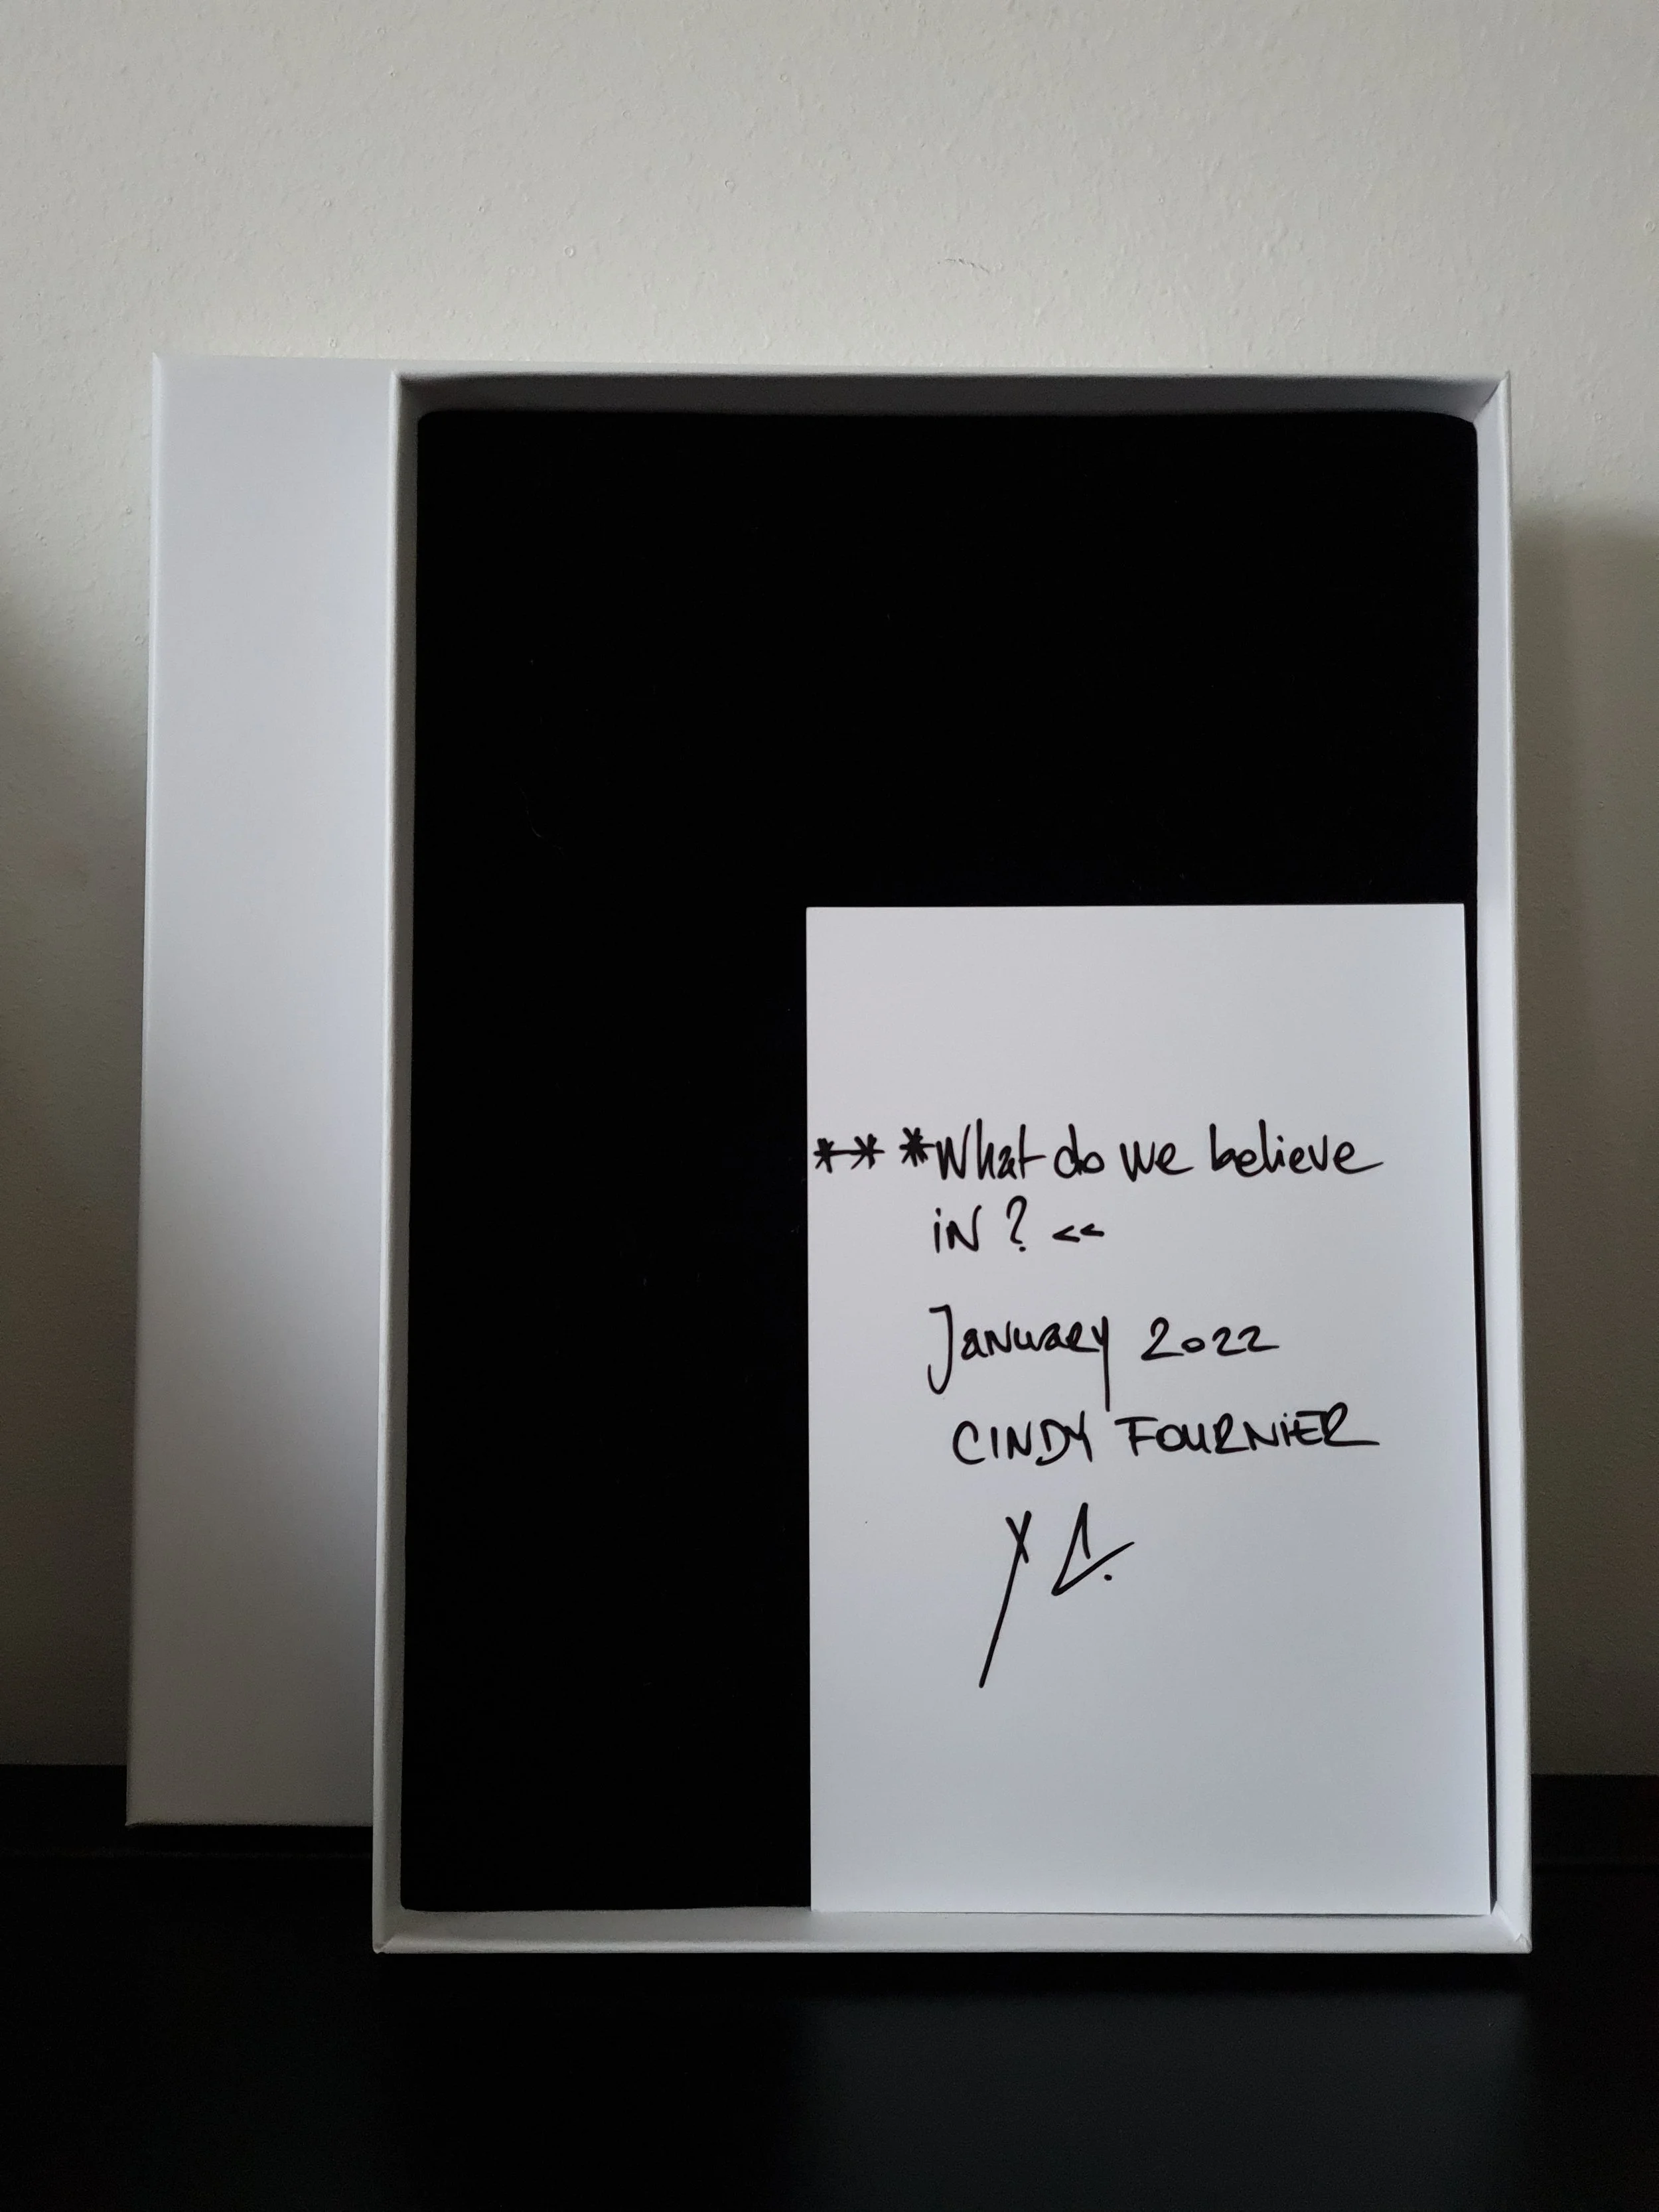 ***What do we believe
in? <<
January 2022
CINDY FOURNIER